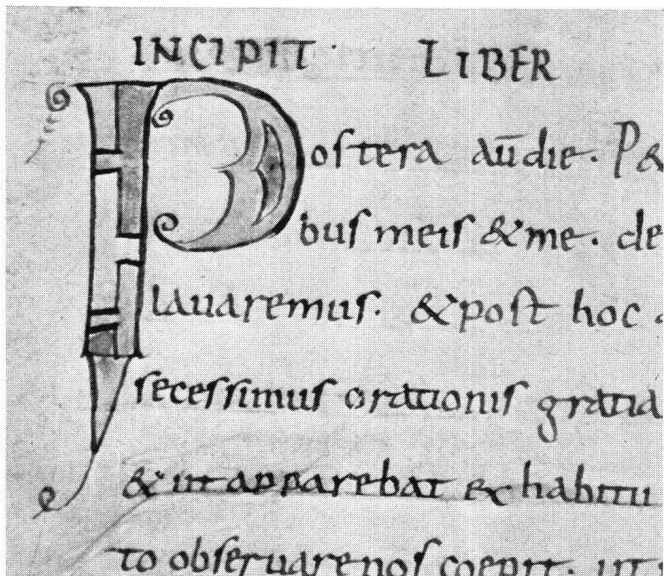 INCIPIT · LIBER
Postera aūdie. P&
bus meis & me. de
lauaremus. & post hoc
secessimus orationis gratia
& ut apparebat ex habitu
to obseruare nos coepit. ut